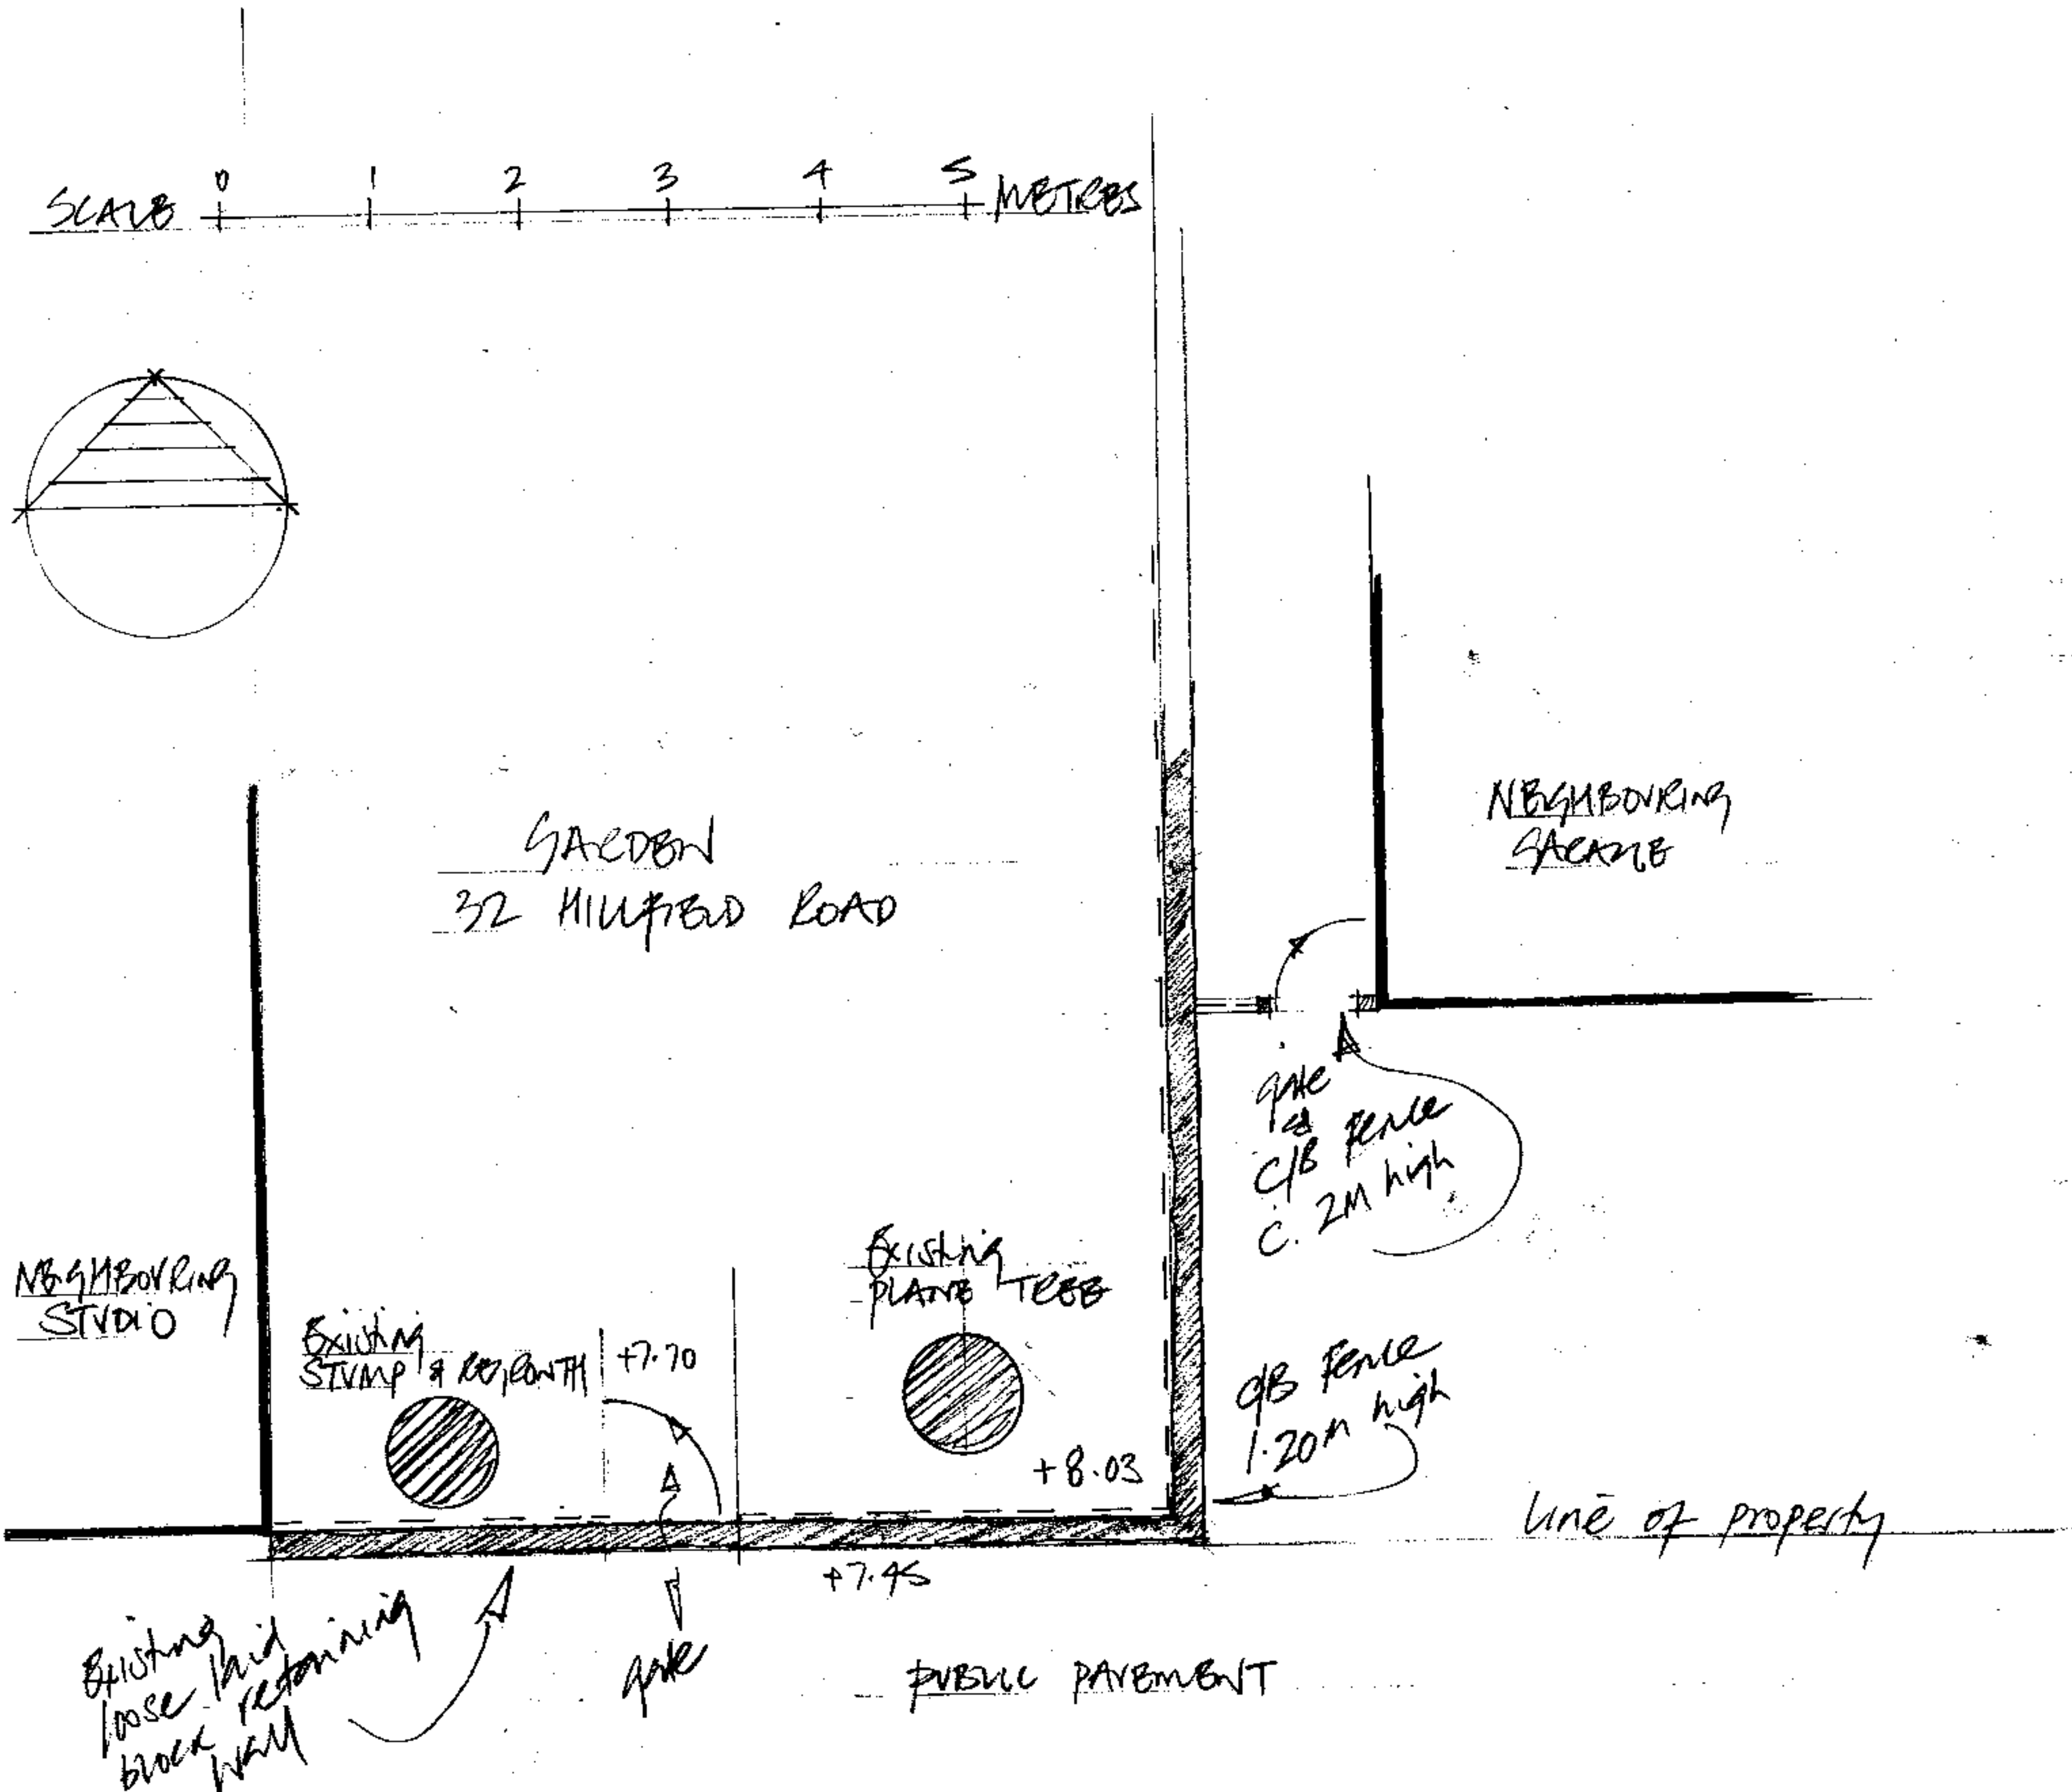 SCALE 0 1 2 3 4 5 METRES
GARDEN
32 HILLFIELD ROAD
NEIGHBOURING
GARAGE
gate
&
C/B Fence
C. 2M high
NEIGHBOURING
STUDIO
Existing
STUMP & REGROWTH
+7.70
Existing
PLANE TREE
+8.03
C/B Fence
1.20M high
Line of property
+7.45
Existing
loose laid
block retaining
wall
gate
PUBLIC PAVEMENT